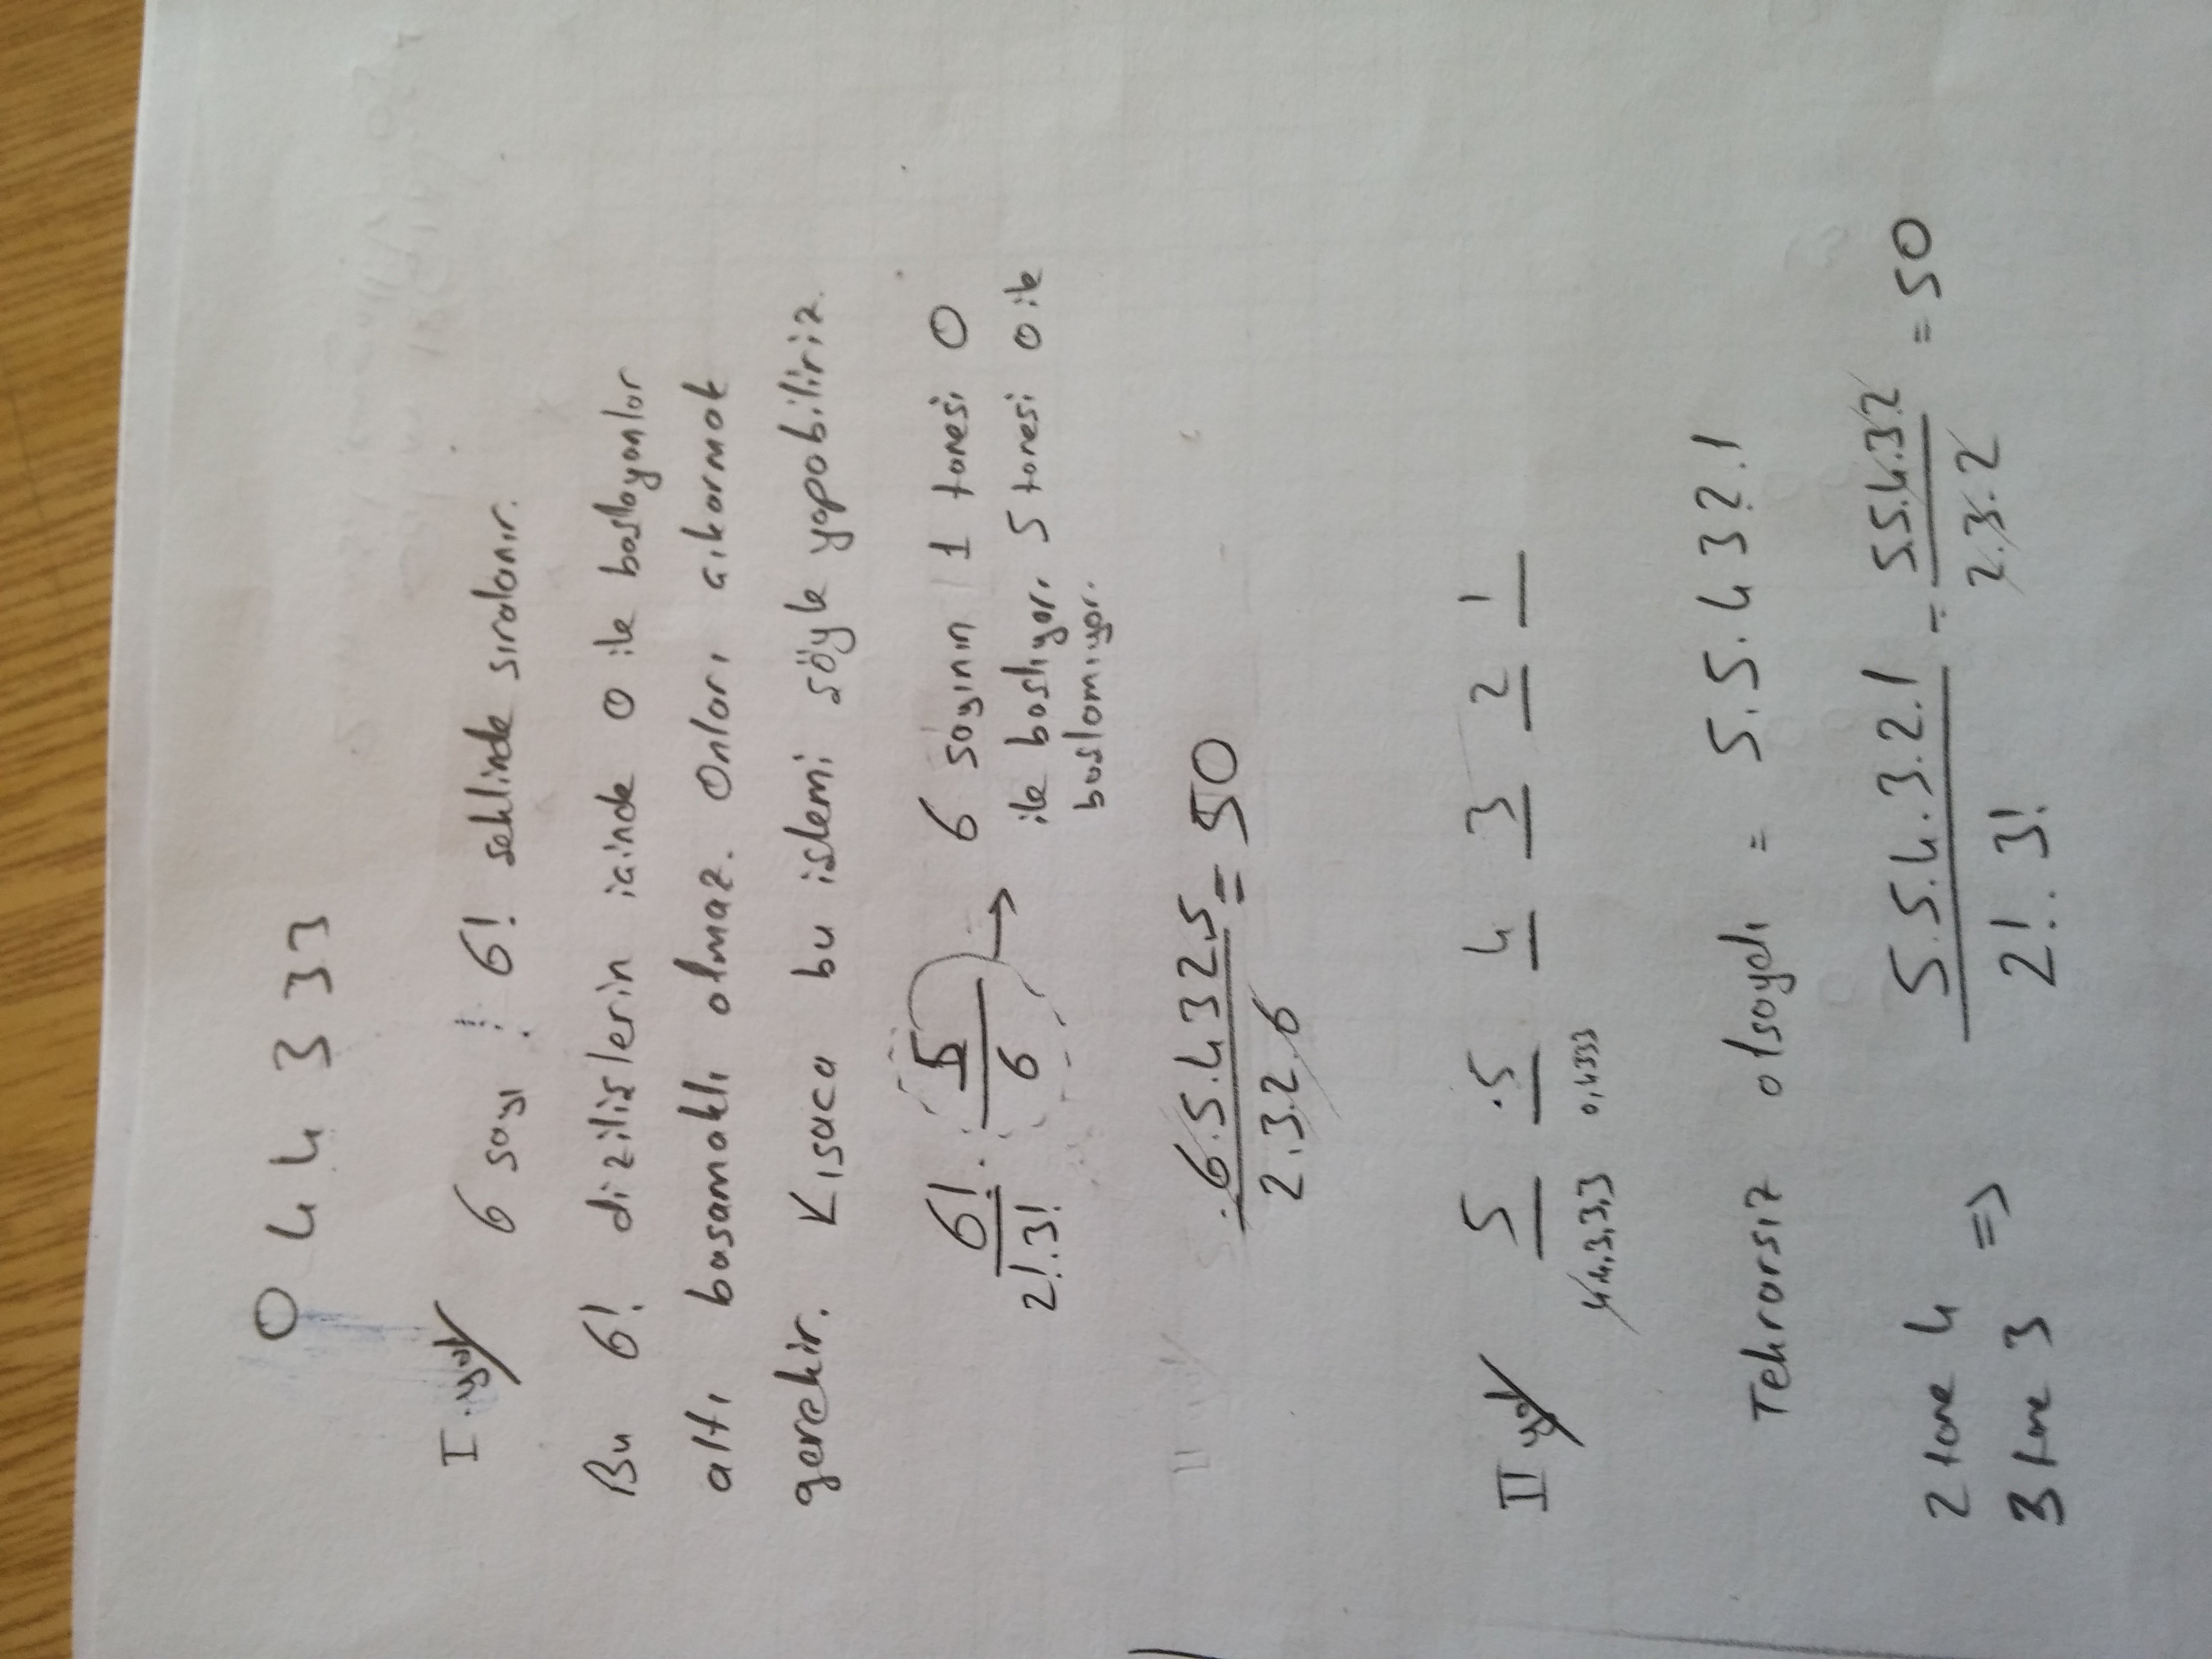 0 4 4 3 3 3
I. yol 6 sayı 6! şeklinde sıralanır.
Bu 6! dizilişlerin içinde 0 ile başlayanlar
altı basamaklı olmaz. Onları çıkarmak
gerekir. Kısaca bu işlemi şöyle yapabiliriz.
6!/2!.3! . 5/6 → 6 sayının 1 tanesi 0
ile başlıyor, 5 tanesi 0 ile
başlamıyor.
6.5.4.3.2.5/2.3.2.6 = 50
II yol 5 .5 4 3 2 1
4,4,3,3,3 0,4,333
Tekrarsız olsaydı = 5.5.4.3.2.1
2 tane 4
3 tane 3 => 5.5.4.3.2.1/2!.3! = 5.5.4.3.2/2.3.2 = 50